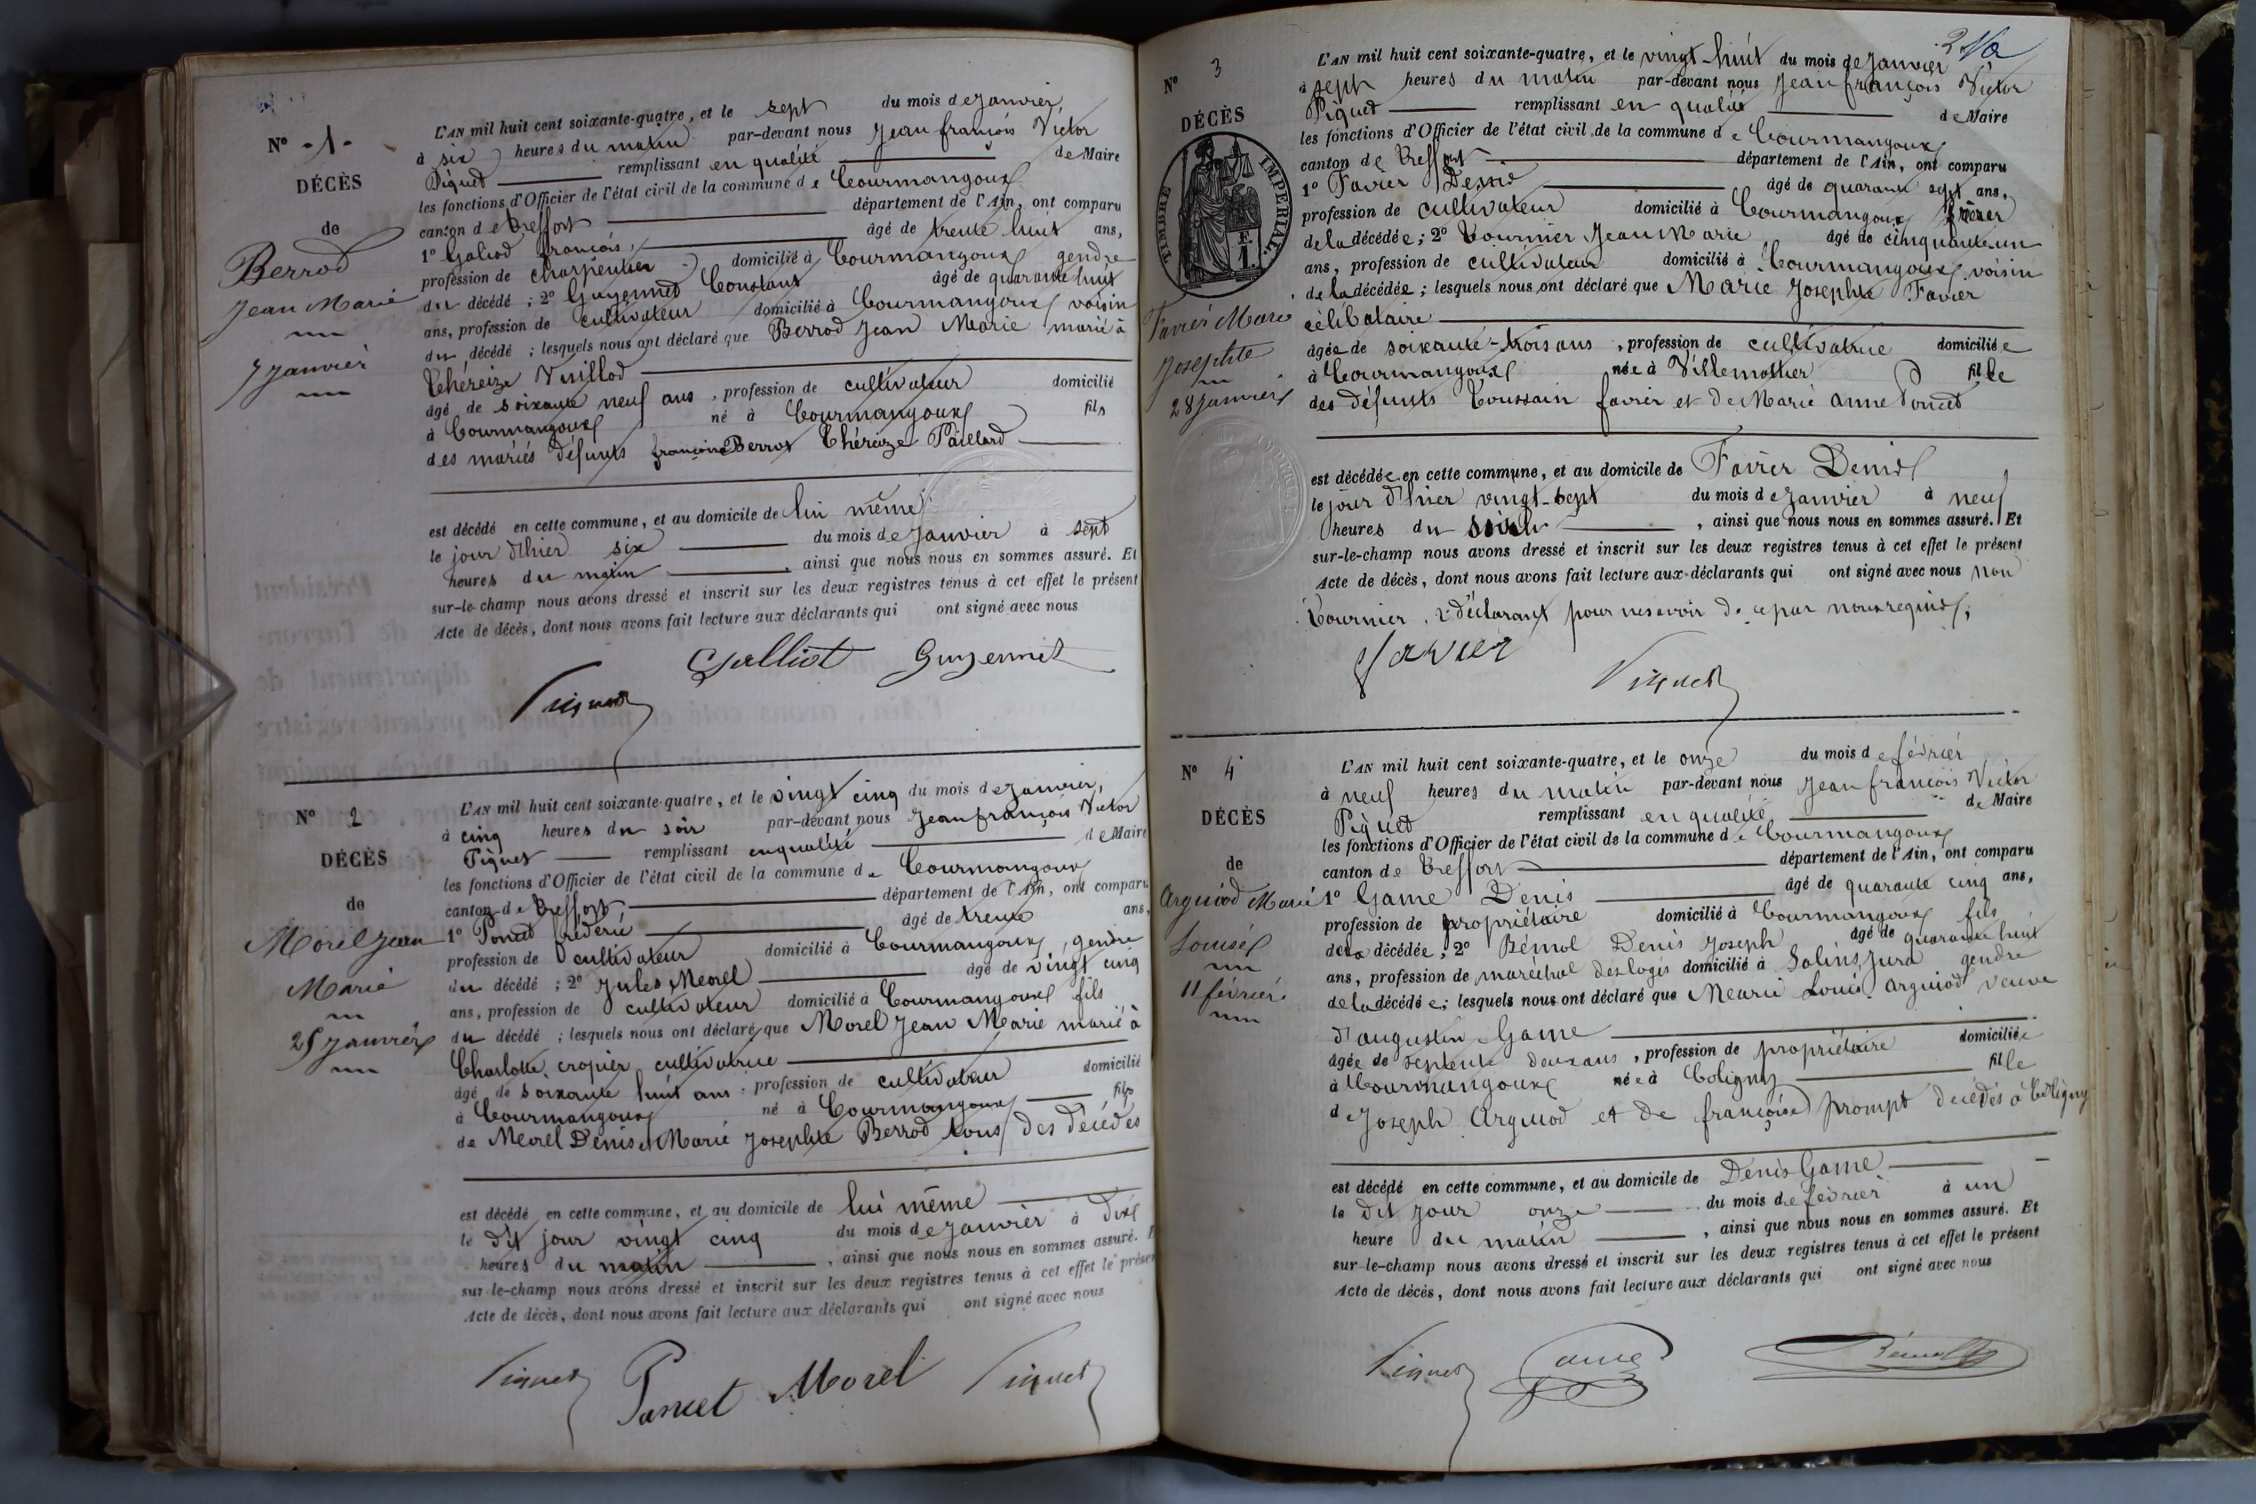 N° -1-
DÉCÈS
de
Berrod
Jean Marie
7 janvier
L'AN mil huit cent soixante-quatre, et le sept du mois de janvier,
à six heures du matin par-devant nous Jean françois Victor
Piquet remplissant en qualité de Maire
les fonctions d'Officier de l'état civil de la commune de Courmangoux
canton de Treffort département de l'Ain, ont comparu
1° Galiod françois, âgé de trente huit ans,
profession de charpentier domicilié à Courmangoux gendre
du décédé ; 2° Guyennet Constant âgé de quarante huit
ans, profession de cultivateur domicilié à Courmangoux voisin
du décédé ; lesquels nous ont déclaré que Berrod Jean Marie marié à
Théreize Vuillod
âgé de soixante neuf ans, profession de cultivateur domicilié
à Courmangoux né à Courmangoux fils
des mariés défunts françois Berrod Théreize Paillard
est décédé en cette commune, et au domicile de lui même
le jour d'hier six du mois de janvier à sept
heures du matin, ainsi que nous nous en sommes assuré. Et
sur-le-champ nous avons dressé et inscrit sur les deux registres tenus à cet effet le présent
Acte de décès, dont nous avons fait lecture aux déclarants qui ont signé avec nous
Galliot Guyennet
Piquet
N° 2
DÉCÈS
de
Morel Jean
Marie
25 janvier
L'AN mil huit cent soixante-quatre, et le vingt cinq du mois de janvier,
à cinq heures du soir par-devant nous Jean françois Victor
Piquet remplissant en qualité de Maire
les fonctions d'Officier de l'état civil de la commune de Courmangoux
canton de Treffort département de l'Ain, ont comparu
1° Poncet fréderic âgé de trente ans,
profession de cultivateur domicilié à Courmangoux, gendre
du décédé ; 2° Jules Morel âgé de vingt cinq
ans, profession de cultivateur domicilié à Courmangoux fils
du décédé ; lesquels nous ont déclaré que Morel Jean Marie marié à
Charlotte cropier cultivatrice
âgé de soixante huit ans, profession de cultivateur domicilié
à Courmangoux né à Courmangoux fils
de Morel Denis et Marie Josephte Berrod tous des décédés
est décédé en cette commune, et au domicile de lui même
le dit jour vingt cinq du mois de janvier à dix
heures du matin, ainsi que nous nous en sommes assuré. E
sur-le-champ nous avons dressé et inscrit sur les deux registres tenus à cet effet le présen
Acte de décès, dont nous avons fait lecture aux déclarants qui ont signé avec nous
Piquet Poncet Morel Piquet
2
N° 3
DÉCÈS
TIMBRE IMPERIAL.
F. 1.
Favier Marie
Josephte
28 janvier
L'AN mil huit cent soixante-quatre, et le vingt-huit du mois de janvier
à sept heures du matin par-devant nous Jean françois Victor
Piquet remplissant en qualité de Maire
les fonctions d'Officier de l'état civil de la commune de Courmangoux
canton de Treffort département de l'Ain, ont comparu
1° Favier Denis âgé de quarante sept ans,
profession de cultivateur domicilié à Courmangoux frère
de la décédée ; 2° Tournier Jean Marie âgé de cinquante un
ans, profession de cultivateur domicilié à Courmangoux, voisin
de la décédée ; lesquels nous ont déclaré que Marie Josephte Favier
célibataire
âgée de soixante-trois ans, profession de cultivatrice domiciliée
à Courmangoux née à Villemottier fille
des défunts Toussain favier et de Marie anne Poncet
est décédée en cette commune, et au domicile de Favier Denis
le jour d'hier vingt-sept du mois de janvier à neuf
heures du soir, ainsi que nous nous en sommes assuré. Et
sur-le-champ nous avons dressé et inscrit sur les deux registres tenus à cet effet le présent
Acte de décès, dont nous avons fait lecture aux déclarants qui ont signé avec nous non
Tournier, 2e déclarant pour ne savoir de ce par nous requis,
favier
Piquet
N° 4
DÉCÈS
de
Arguiod Marie
Louise
11 février
L'AN mil huit cent soixante-quatre, et le onze du mois de février
à neuf heures du matin par-devant nous Jean françois Victor
Piquet remplissant en qualité de Maire
les fonctions d'Officier de l'état civil de la commune de Courmangoux
canton de Treffort département de l'Ain, ont comparu
1° Game Denis âgé de quarante cinq ans,
profession de propriétaire domicilié à Courmangoux fils
de la décédée ; 2° Bémol Denis Joseph âgé de quarante huit
ans, profession de maréchal des logis domicilié à Salins, Jura gendre
de la décédée ; lesquels nous ont déclaré que Marie Louise arguiod veuve
d'augustin Game
âgée de septente deux ans, profession de propriétaire domiciliée
à Courmangoux née à Coligny fille
de Joseph Arguiod et de françoise prompt décédés à Coligny
est décédé en cette commune, et au domicile de Denis Game
le dit jour onze du mois de février à un
heure du matin, ainsi que nous nous en sommes assuré. Et
sur-le-champ nous avons dressé et inscrit sur les deux registres tenus à cet effet le présent
Acte de décès, dont nous avons fait lecture aux déclarants qui ont signé avec nous
Piquet Game Bémol